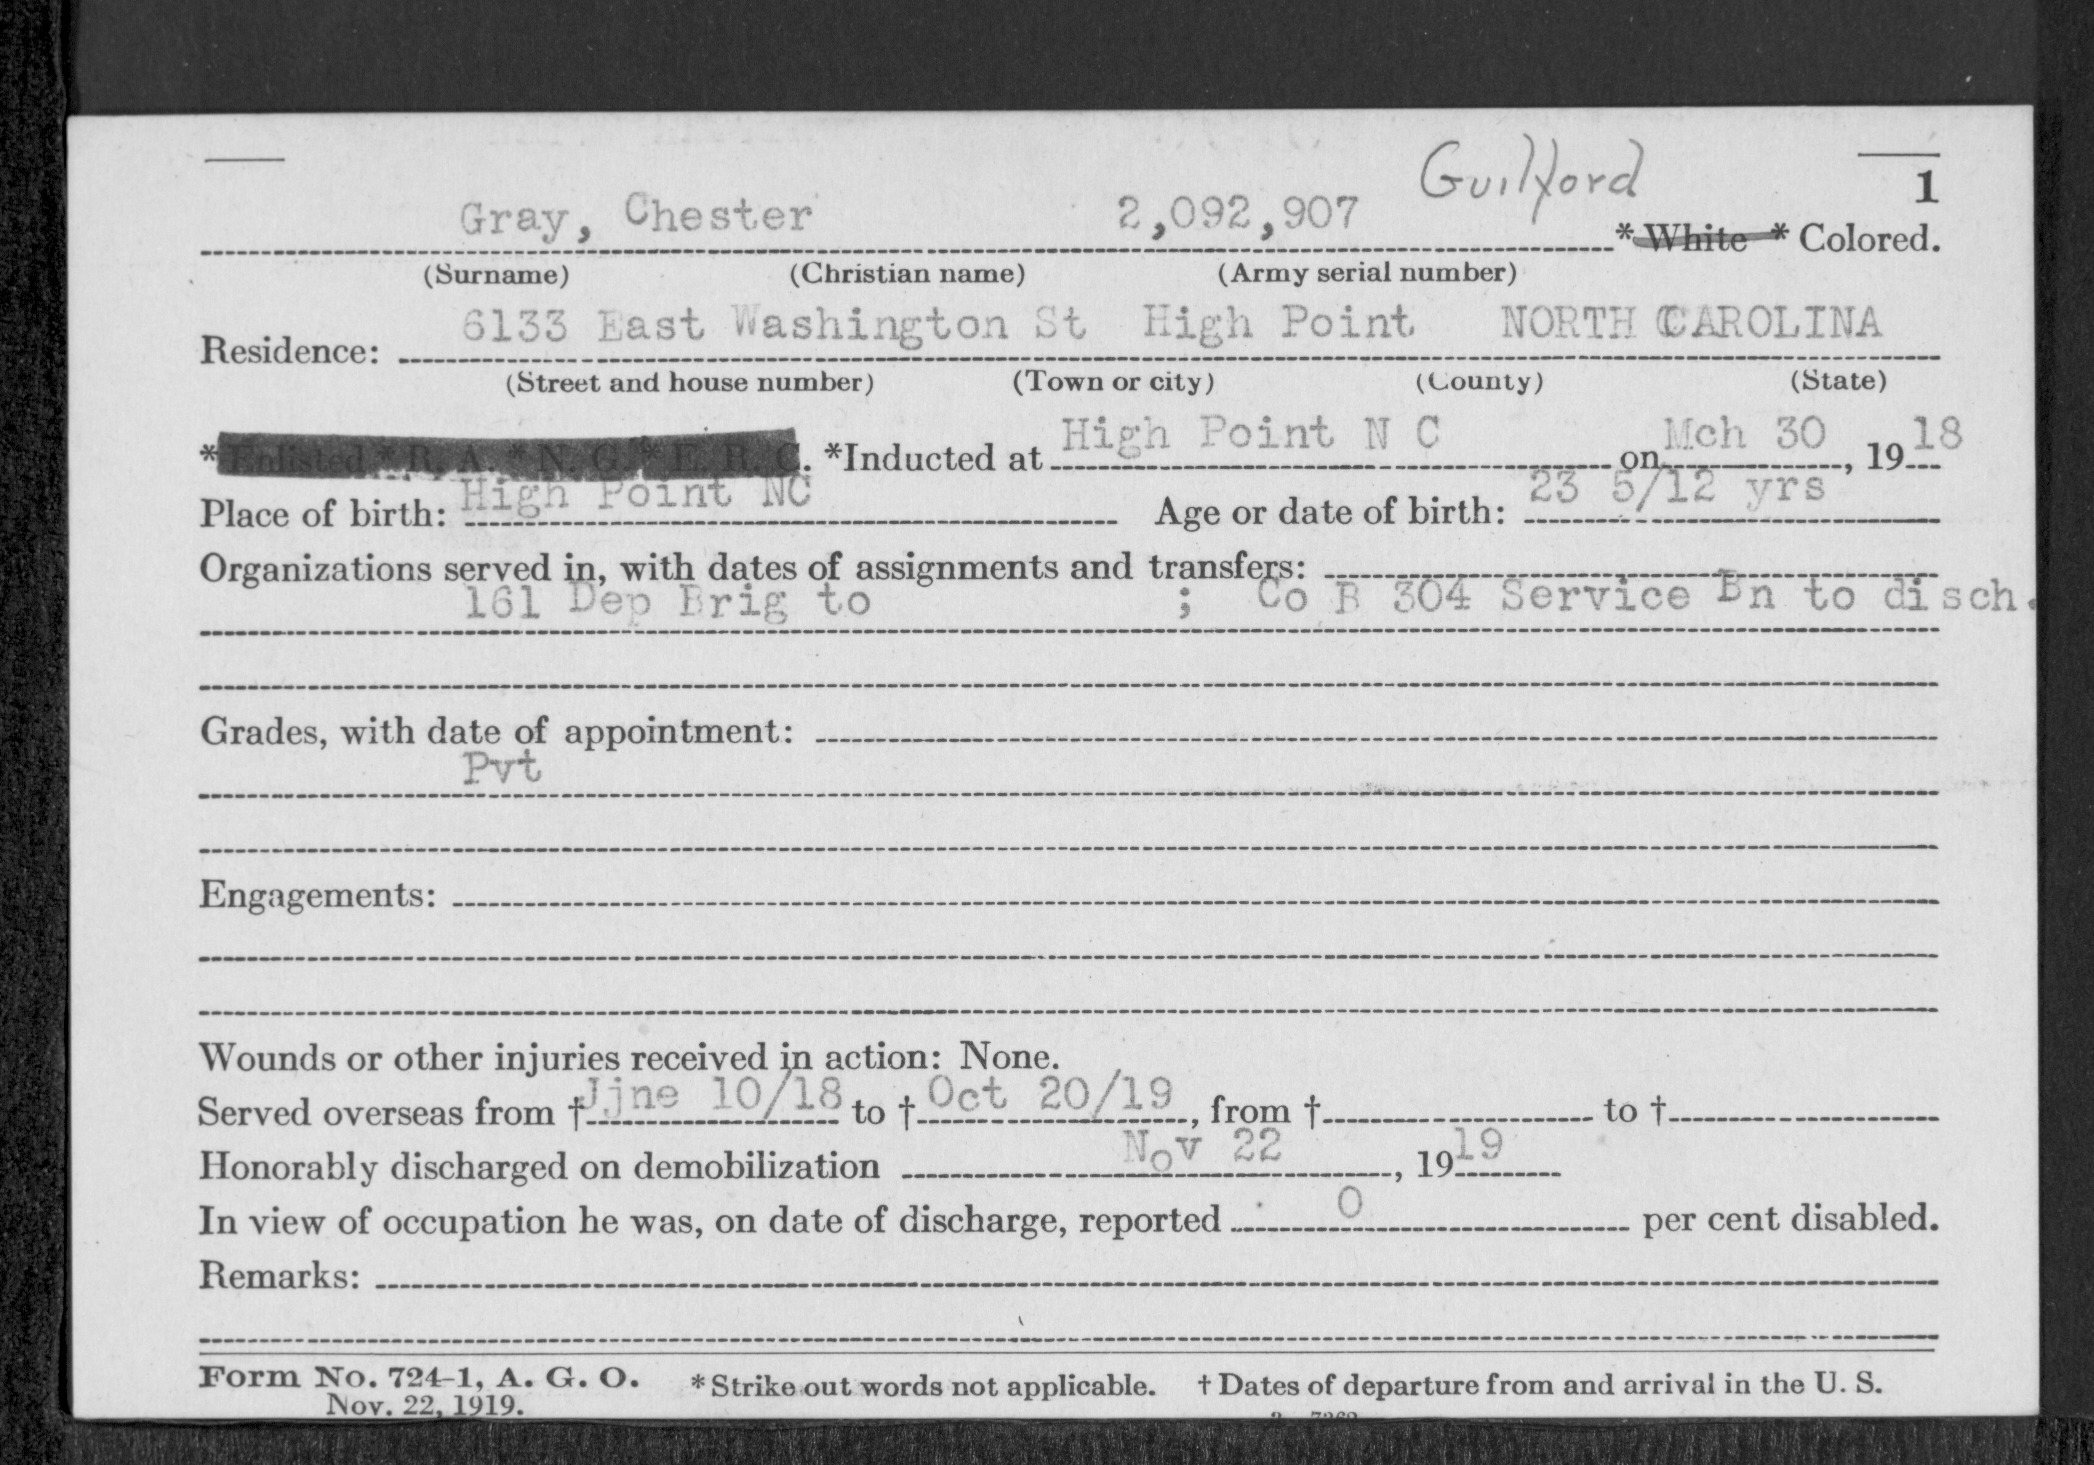 Guilford
1
Gray, Chester 2,092,907 *White *Colored.
(Surname) (Christian name) (Army serial number)
6133 East Washington St High Point NORTH CAROLINA
Residence:
(Street and house number) (Town or city) (County) (State)
*Enlisted *R. A. *N. G. *E. R. C. *Inducted at High Point N C on Mch 30, 1918
Place of birth: High Point NC Age or date of birth: 23 5/12 yrs
Organizations served in, with dates of assignments and transfers:
161 Dep Brig to ; Co B 304 Service Bn to disch.
Grades, with date of appointment:
Pvt
Engagements:
Wounds or other injuries received in action: None.
Served overseas from † Jjne 10/18 to † Oct 20/19, from † to †
Honorably discharged on demobilization Nov 22, 1919
In view of occupation he was, on date of discharge, reported 0 per cent disabled.
Remarks:
Form No. 724-1, A. G. O. *Strike out words not applicable. † Dates of departure from and arrival in the U. S.
Nov. 22, 1919.